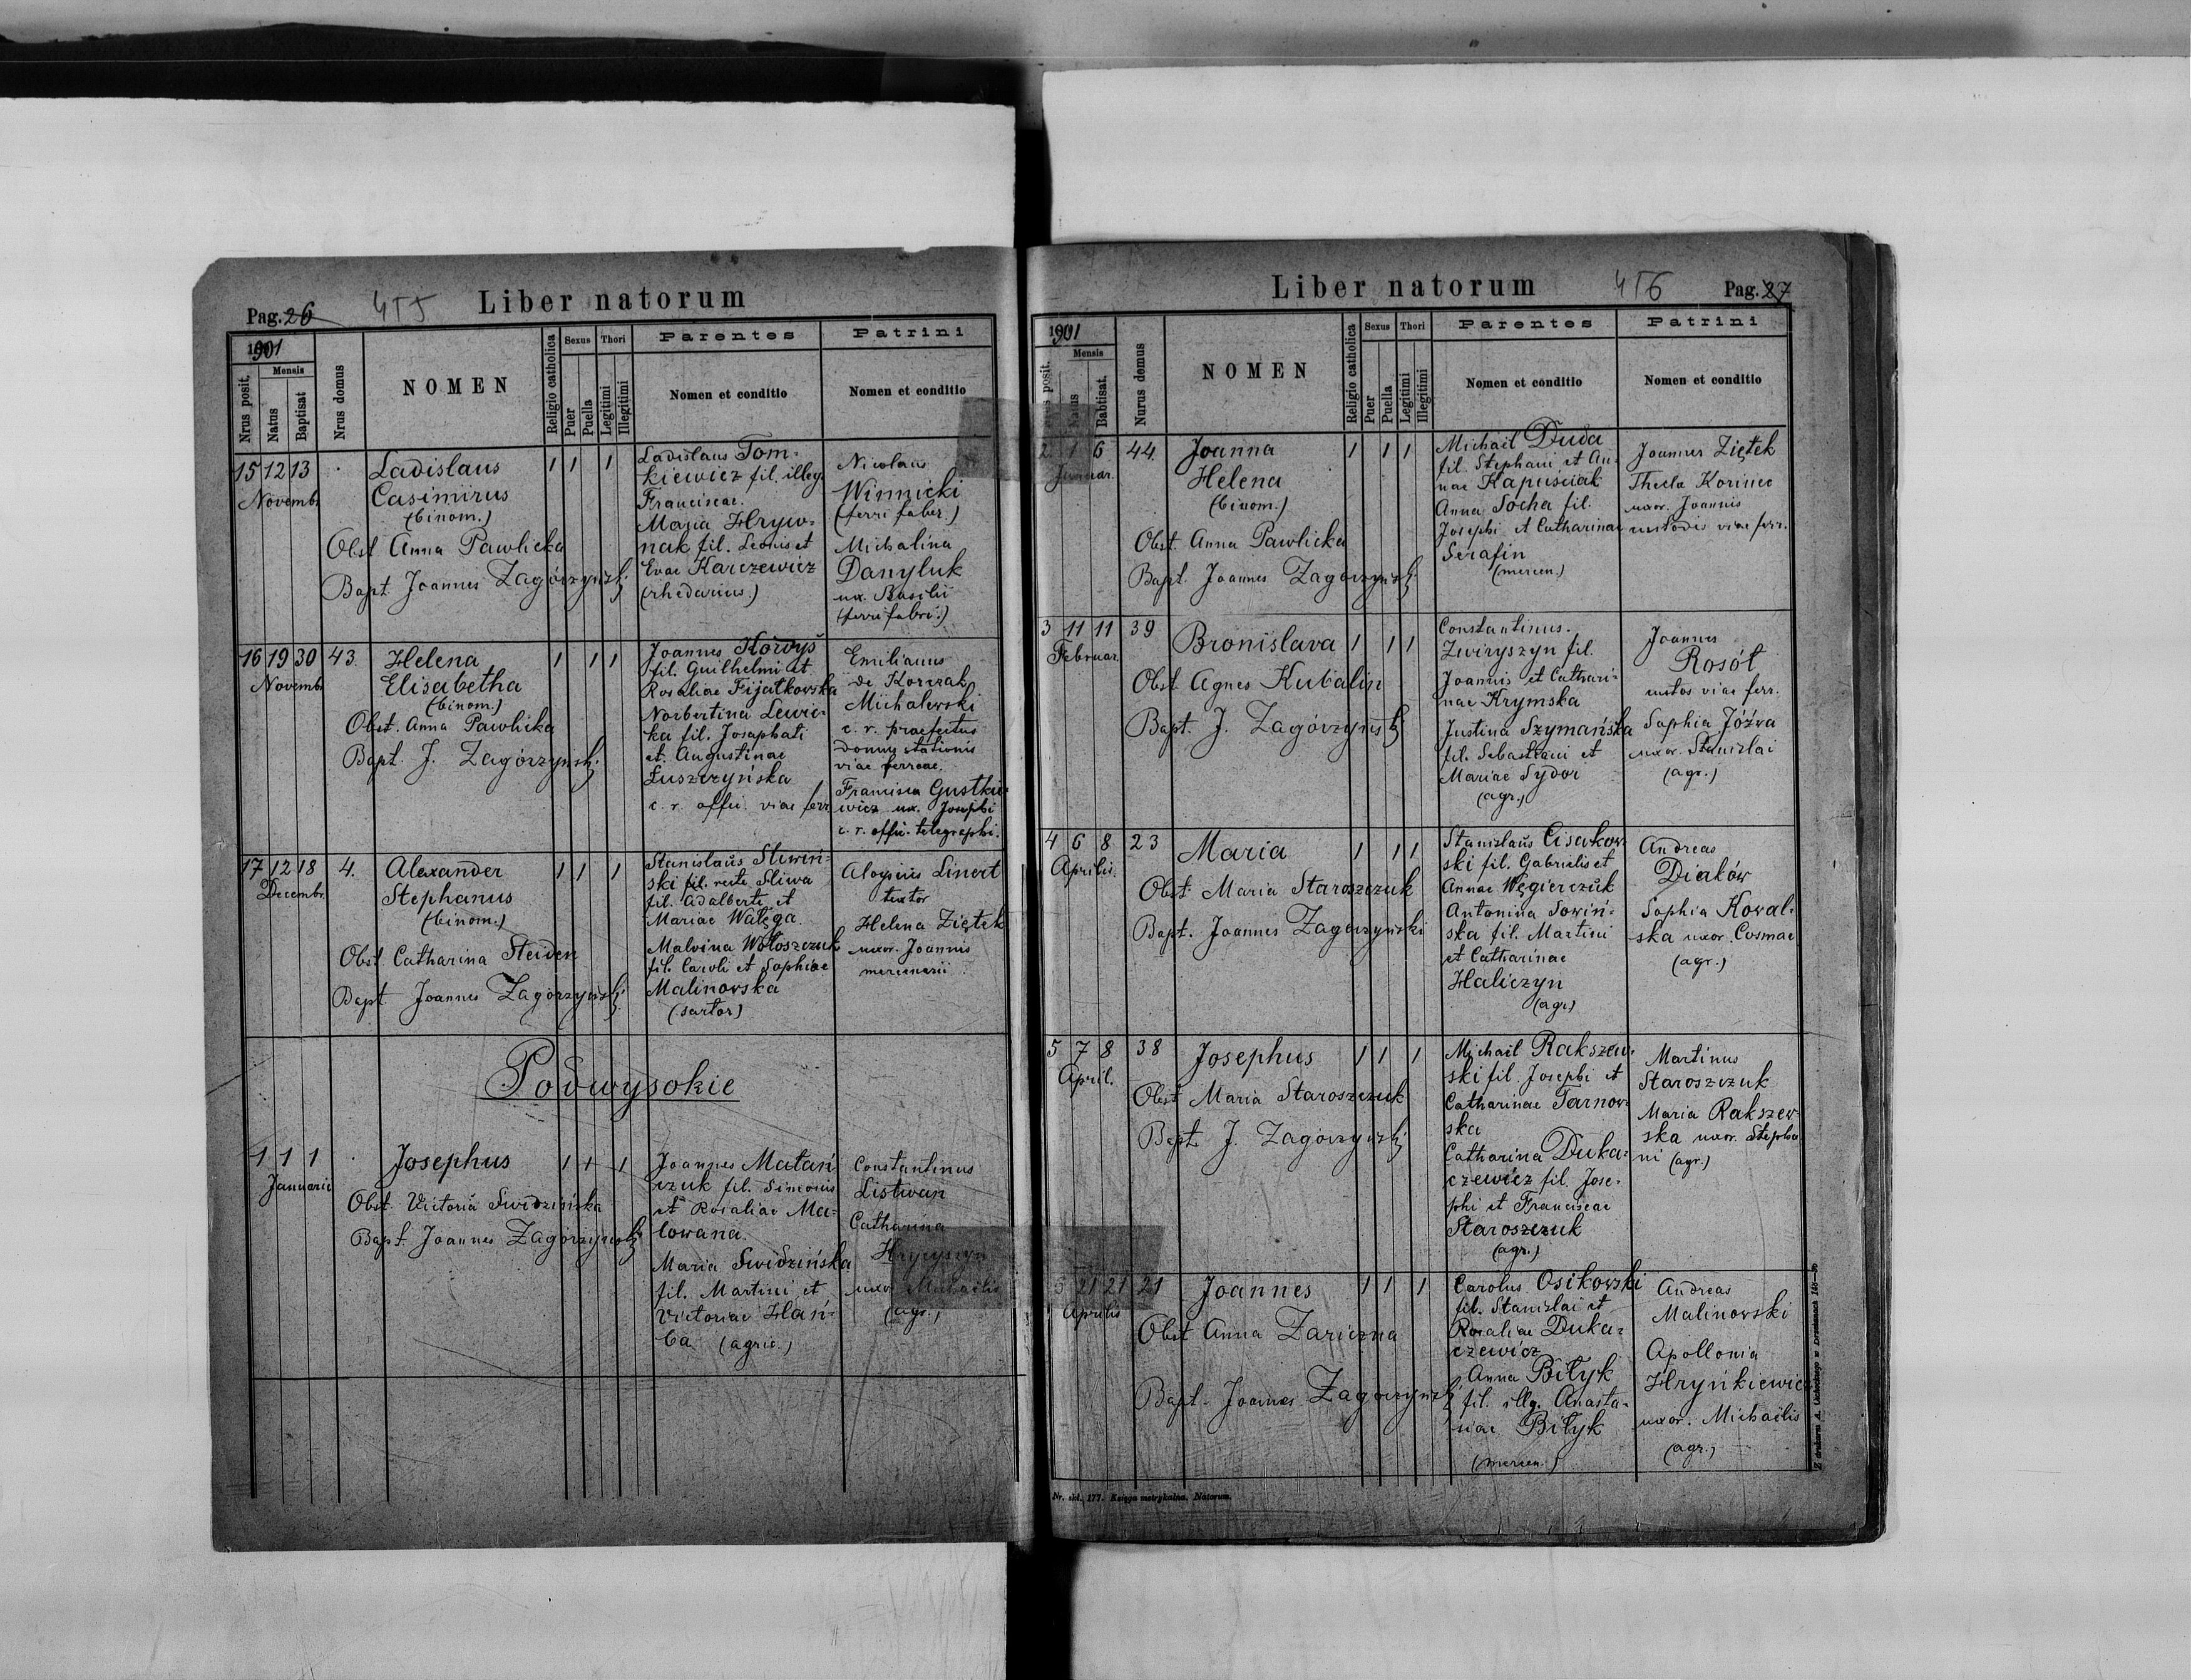 Pag. 26
455
Liber natorum
1901
Nrus posit.
Mensis
Natus
Baptisat
Nrus domus
NOMEN
Religio catholica
Sexus
Puer
Puella
Thori
Legitimi
Illegitimi
Parentes
Nomen et conditio
Patrini
Nomen et conditio
15 12 13
Novemb.
Ladislaus
Casimirus
(binom.)
Obst. Anna Pawlicka
Bapt. Joannes Zagórzyński
1 1 1
Ladislaus Tom-
kiewicz fil. illeg.
Franciscae.
Maria Hryw-
nak fil. Leonis et
Evae Karczewicz
(rhedarius.)
Nicolaus
Winnicki
(ferri faber.)
Michalina
Danyluk
ux. Basilii
(ferri fabri.)
16 19 30 43.
Novemb.
Helena
Elisabetha
(binom.)
Obst. Anna Pawlicka
Bapt. J. Zagórzyński
1 1 1
Joannes Kordyś
fil. Guilhelmi et
Rosaliae Fijałkowska
Norbertina Lewic-
ka fil. Josaphati
et Augustinae
Łuszczyńska
c. r. offic. viae ferr.
Emilianus
de Korczak
Michalewski
c. r. praefectus
domus stationis
viae ferreae.
Francisca Gustkie-
wicz ux. Josephi
c. r. offic. telegraphi.
17 12 18 4.
Decembr.
Alexander
Stephanus
(binom.)
Obst. Catharina Steiden
Bapt. Joannes Zagórzyński
1 1 1
Stanislaŭs Śliwiń-
ski fil. recte Śliwa
fil. Adalberti et
Mariae Wałęga
Malvina Wołoszczuk
fil. Caroli et Sophiae
Malinovska
(sartor)
Aloysius Linert
textor
Helena Ziętek
uxor. Joannis
mercenarii
Podwysokie
1 1 1
Januarii
Josephus
Obst. Victoria Świdzińska
Bapt. Joannes Zagórzyński
1 1 1
Joannes Matań-
czuk fil. Simonis
et Rosaliae Ma-
lowana.
Maria Świdzińska
fil. Martini et
Victoriae Hań-
ba (agric.)
Constantinus
Listwan
Catharina
Hrycyszyn
uxor. Michaëlis
(agr.)
Liber natorum
456
Pag. 27
1901
posit.
Mensis
Natus
Babtisat.
Nurus domus
NOMEN
Religio catholica
Sexus
Puer
Puella
Thori
Legitimi
Illegitimi
Parentes
Nomen et conditio
Patrini
Nomen et conditio
2 1 6 44.
Januar.
Joanna
Helena
(binom.)
Obst. Anna Pawlicka
Bapt. Joannes Zagórzyński
1 1 1
Michaël Duda
fil. Stephani et An-
nae Kapuściak
Anna Socha fil.
Josephi et Catharinae
Serafin
(mercen.)
Joannes Ziętek
Thecla Korinec
uxor. Joannis
custodis viae ferr.
3 11 11 39
Februar.
Bronislava
Obst. Agnes Kubalin
Bapt. J. Zagórzyński
1 1 1
Constantinus.
Zwiryszyn fil.
Joannis et Cathari-
nae Krymska
Justina Szymańska
fil. Sebastiani et
Mariae Sydor
(agr.)
Joannes
Rosół
custos viae ferr.
Sophia Józva
uxor. Stanislai
(agr.)
4 6 8 23
Aprilis.
Maria
Obst. Maria Staroszczuk
Bapt. Joannes Zagórzyński
1 1 1
Stanislaŭs Cisakow-
ski fil. Gabrielis et
Annae Węgierczuk
Antonina Sowiń-
ska fil. Martini
et Catharinae
Haliczyn
(agr)
Andreas
Diaków
Sophia Kowal-
ska uxor. Cosmae
(agr.)
5 7 8 38
April.
Josephus
Obst. Maria Staroszczuk
Bapt. J. Zagórzyński
1 1 1
Michaël Rakszew-
ski fil. Josephi et
Catharinae Tarnow-
ska
Catharina Duka-
czewicz fil. Jose-
phi et Franciscae
Staroszczuk
(agr.)
Martinus
Staroszczuk
Maria Rakszew-
ska uxor. Stepha-
ni (agr.)
21 21 21
Aprilis
Joannes
Obst. Anna Zariczna
Bapt. Joannes Zagórzyński
1 1 1
Carolus Osikowski
fil. Stanislai et
Rosaliae Duka-
czewicz
Anna Biłyk
fil. illg. Anasta-
siae Biłyk
(mercen.)
Andreas
Malinovski
Apollonia
Hryńkiewicz
uxor. Michaëlis
(agr.)
Nr. skł. 177. Księga metrykalna. Natorum.